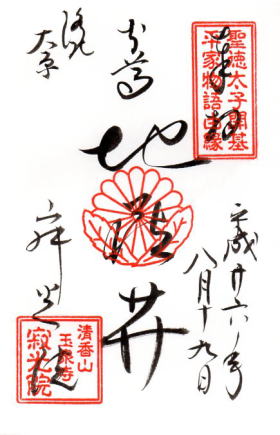 奉拝
聖徳太子開基
平家物語由縁
平成廿六年
八月十九日
本尊
地蔵𦬇
洛北
大原
寂光院
清香山
玉泉寺
寂光院